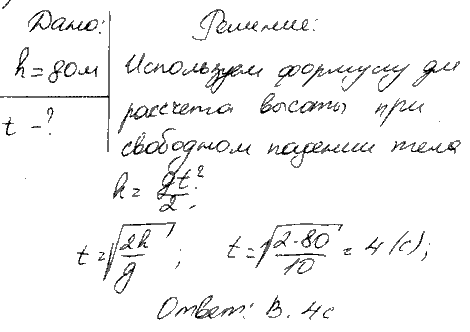 Дано: Решение:
h = 80м Используем формулу для
рассчета высоты при
t - ? свободном падении тела
h = gt²/2;
t = √(2h/g); t = √(2·80/10) = 4 (с);
Ответ: В. 4с